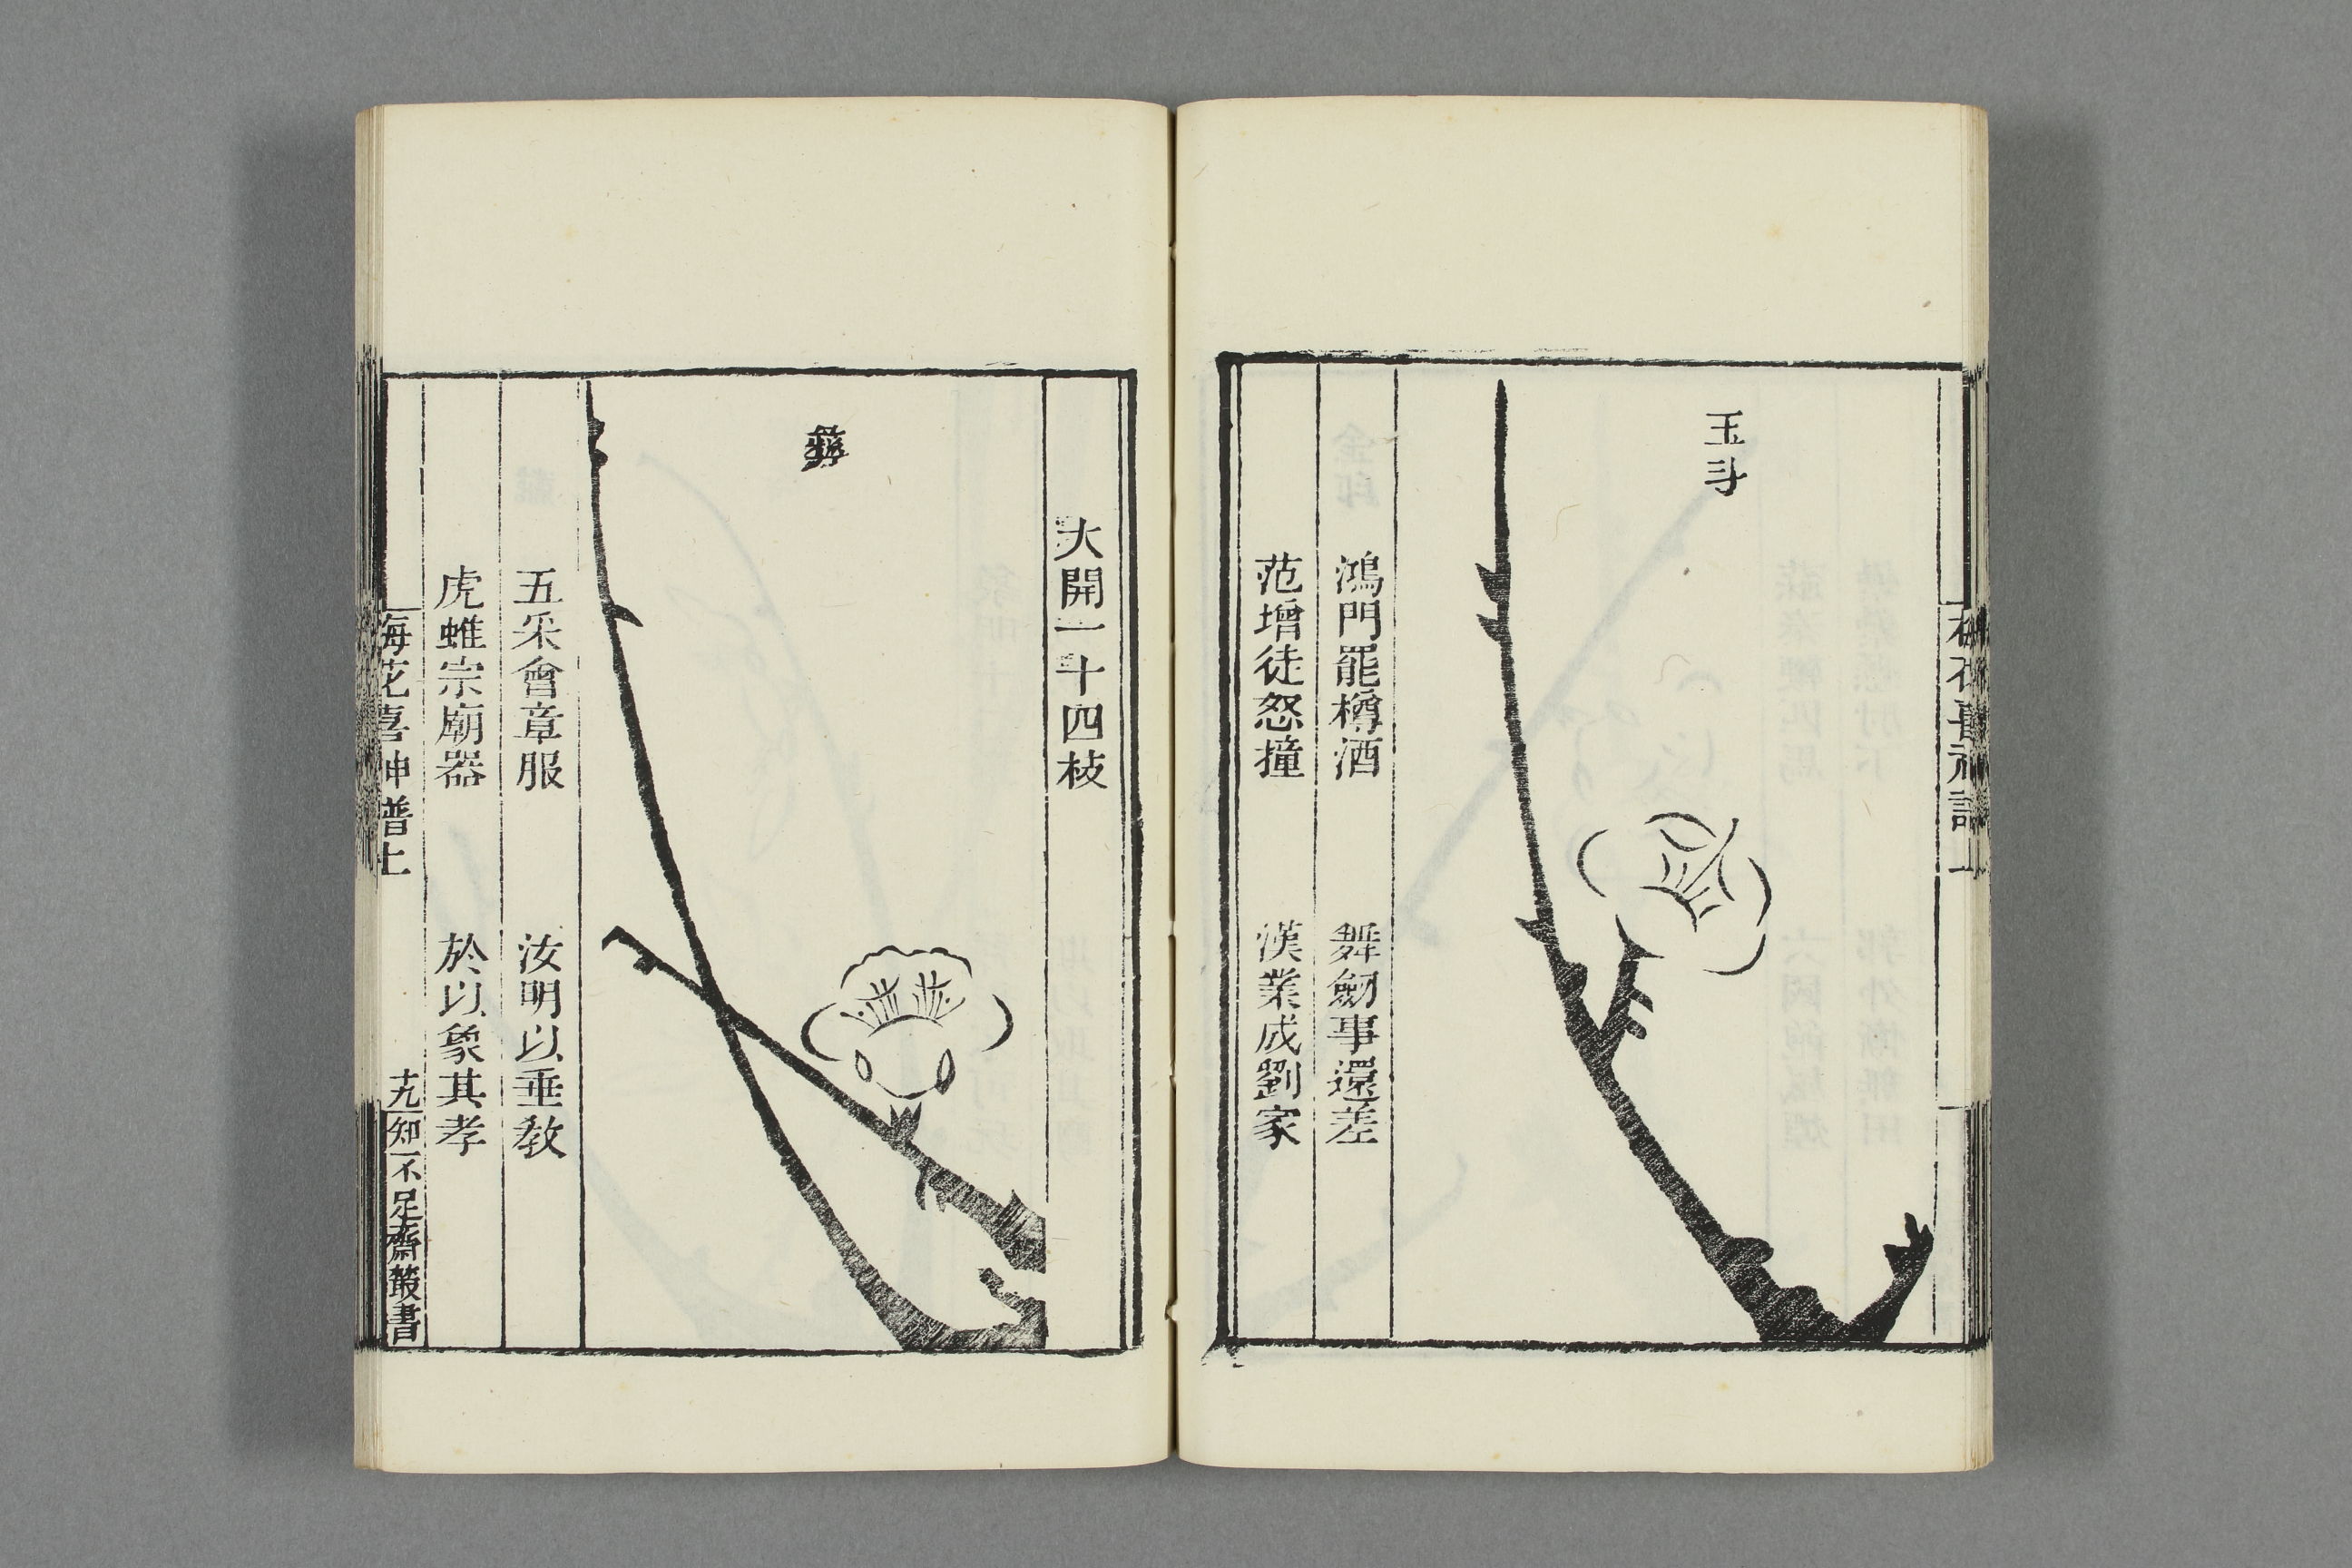 梅花喜神譜上
玉斗
鴻門罷樽酒　舞劒事還差
范增徒怒撞　漢業成劉家
大開一十四枝
彝
五采會章服　汝明以垂教
虎蜼宗廟器　於以象其孝
梅花喜神譜上　十九　知不足齋叢書